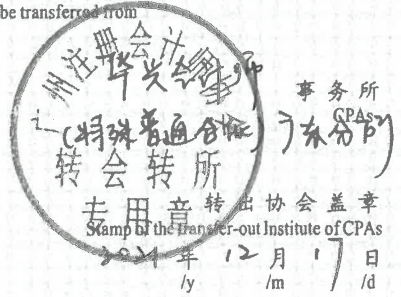 be transferred from
广州注册会计师
华兴
事务所
CPAs
(特殊普通合伙)广东分所
转会转所
专用章
转出协会盖章
Stamp of the transfer-out Institute of CPAs
2021 年 12 月 17 日
/y /m /d